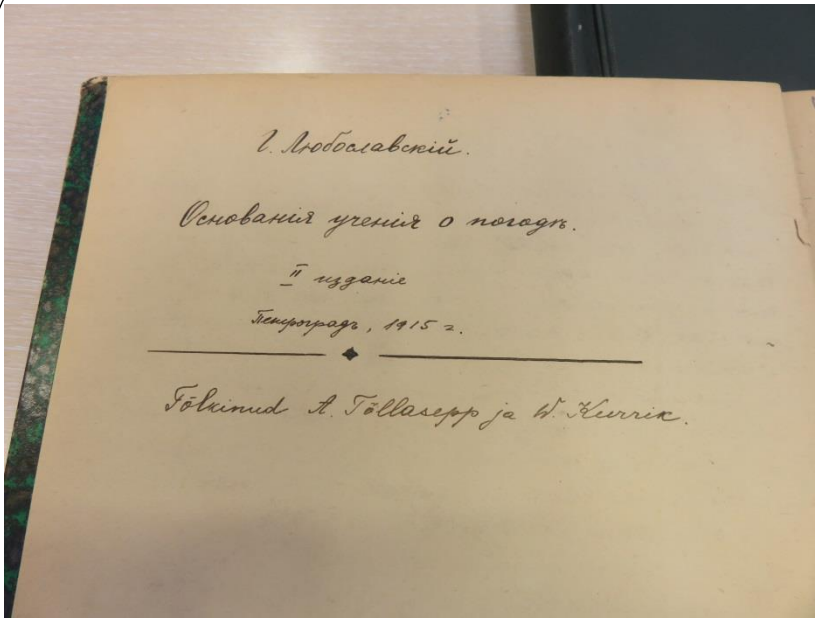 Г. Любославскій.
Основанія ученія о погодѣ.
II изданіе
Петроградъ, 1915 г.
Tõlkinud A. Tõllasepp ja W. Kurrik.